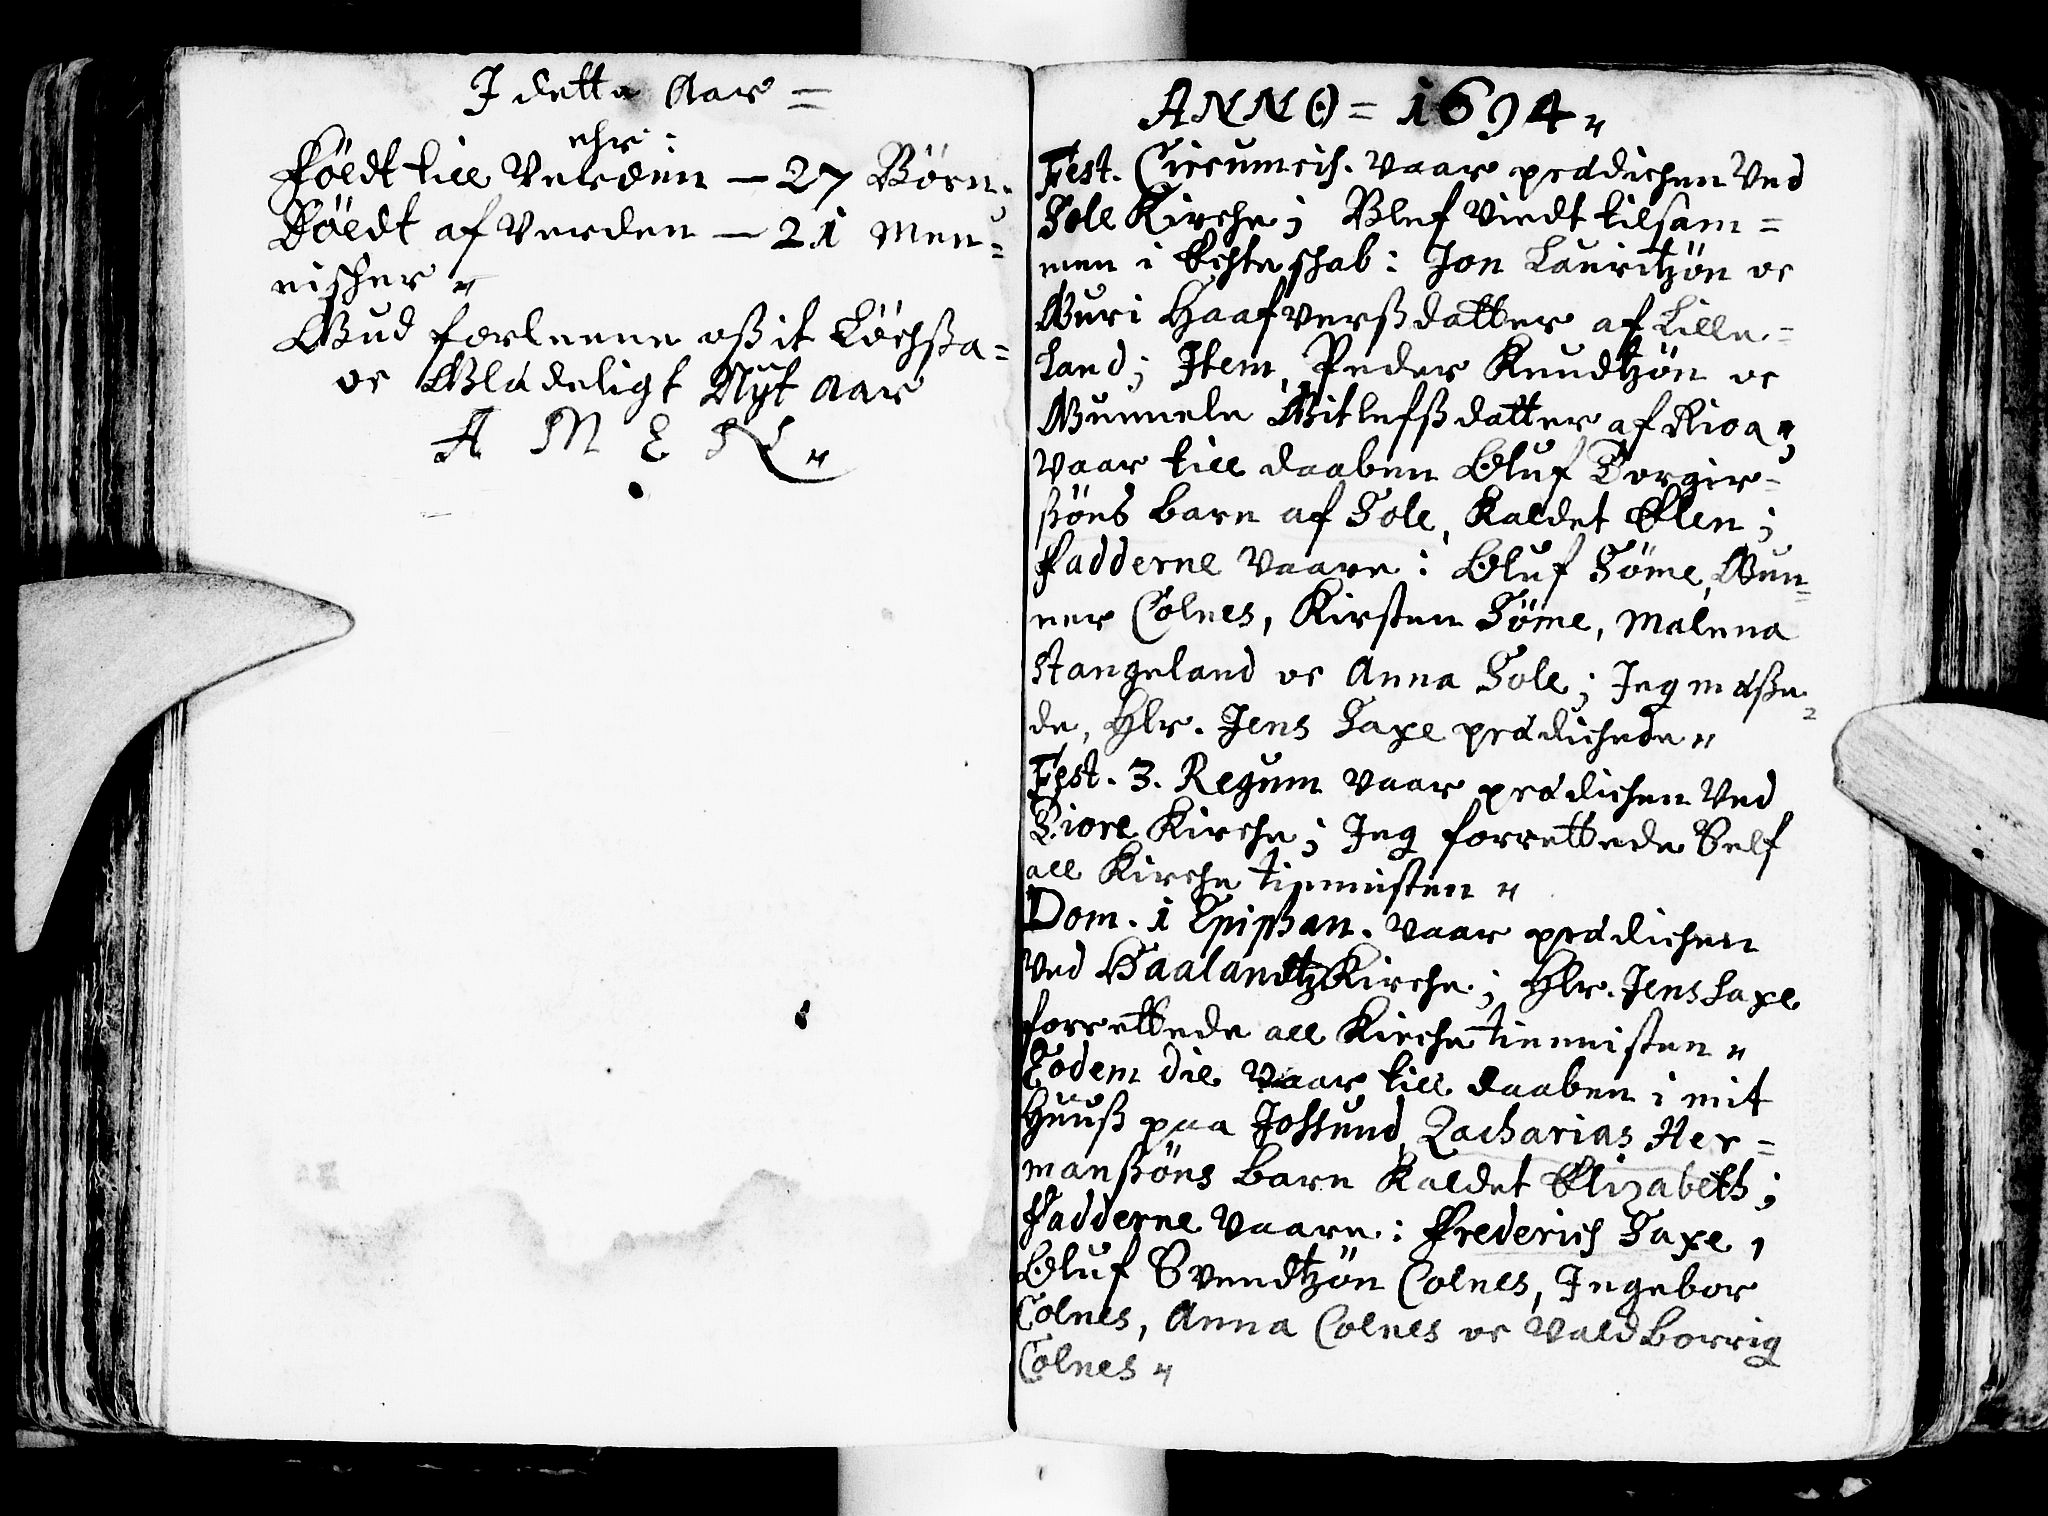 I dette Aar =
ehr:
Föedt till Verden — 27 Börn;
Döedt af Verden — 21 Men=
nischer "
Gud forleene oß it Löchsa=
oc Glædeligt Nyt Aar
A M E N "
ANNO = 1694 "
Fest. Circumcis. vaar prædichen ved
Sole Kirche; Blef Viedt tilsam=
men i Echteschab: Jon Lauritzön oc
Guri Haafverßdatter af Lille=
land; Item, Peder Knudtzön oc
Gunnele Gitlefßdatter af Risa ";
vaar till daaben Oluf Torgir=
ßöns barn af Sole, Kaldet Elen;
Fadderne Vaare: Oluf Söme, Gun=
ner Colnes, Kirsten Söme, Malena
Stangeland oc Anna Sole; Jeg mæße=
de, Hlr. Jens Saxe prædichede "
Fest. 3. Regum vaar prædichen ved
Tiore Kirche; Jeg forrettede Self
all Kirche tiennisten "
Dom. 1 Epiphan. vaar prædichen
ved Haalandtz Kirche; Hlr. Jens Saxe
forrettede all Kirche tiennisten "
Eodem die vaar till daaben i mit
Huuß paa Jossund, Zacharias Her=
manßöns barn Kaldet Elizabeth;
Fadderne vaare: Frederich Saxe,
Oluf Svendtzön Colnes, Ingebor
Colnes, Anna Colnes oc Valdborrig
Colnes "